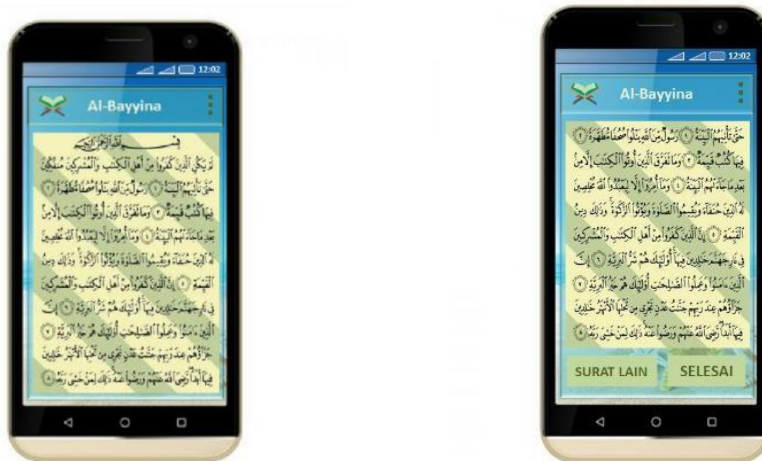 12:02
Al-Bayyina
بِسْمِ اللَّهِ الرَّحْمَٰنِ الرَّحِيمِ
لَمْ يَكُنِ الَّذِينَ كَفَرُوا مِنْ أَهْلِ الْكِتَٰبِ وَالْمُشْرِكِينَ مُنفَكِّينَ
حَتَّىٰ تَأْتِيَهُمُ الْبَيِّنَةُ ١ رَسُولٌ مِّنَ اللَّهِ يَتْلُوا صُحُفًا مُّطَهَّرَةً ٢
فِيهَا كُتُبٌ قَيِّمَةٌ ٣ وَمَا تَفَرَّقَ الَّذِينَ أُوتُوا الْكِتَٰبَ إِلَّا مِنۢ
بَعْدِ مَا جَآءَتْهُمُ الْبَيِّنَةُ ٤ وَمَآ أُمِرُوٓا إِلَّا لِيَعْبُدُوا اللَّهَ مُخْلِصِينَ
لَهُ الدِّينَ حُنَفَآءَ وَيُقِيمُوا الصَّلَوٰةَ وَيُؤْتُوا الزَّكَوٰةَ وَذَٰلِكَ دِينُ
الْقَيِّمَةِ ٥ إِنَّ الَّذِينَ كَفَرُوا مِنْ أَهْلِ الْكِتَٰبِ وَالْمُشْرِكِينَ
فِي نَارِ جَهَنَّمَ خَٰلِدِينَ فِيهَآ أُولَٰٓئِكَ هُمْ شَرُّ الْبَرِيَّةِ ٦ إِنَّ
الَّذِينَ ءَامَنُوا وَعَمِلُوا الصَّٰلِحَٰتِ أُولَٰٓئِكَ هُمْ خَيْرُ الْبَرِيَّةِ ٧
جَزَآؤُهُمْ عِندَ رَبِّهِمْ جَنَّٰتُ عَدْنٍ تَجْرِي مِن تَحْتِهَا الْأَنْهَٰرُ خَٰلِدِينَ
فِيهَآ أَبَدًا رَّضِيَ اللَّهُ عَنْهُمْ وَرَضُوا عَنْهُ ذَٰلِكَ لِمَنْ خَشِيَ رَبَّهُ ٨
12:02
Al-Bayyina
حَتَّىٰ تَأْتِيَهُمُ الْبَيِّنَةُ ١ رَسُولٌ مِّنَ اللَّهِ يَتْلُوا صُحُفًا مُّطَهَّرَةً ٢
فِيهَا كُتُبٌ قَيِّمَةٌ ٣ وَمَا تَفَرَّقَ الَّذِينَ أُوتُوا الْكِتَٰبَ إِلَّا مِنۢ
بَعْدِ مَا جَآءَتْهُمُ الْبَيِّنَةُ ٤ وَمَآ أُمِرُوٓا إِلَّا لِيَعْبُدُوا اللَّهَ مُخْلِصِينَ
لَهُ الدِّينَ حُنَفَآءَ وَيُقِيمُوا الصَّلَوٰةَ وَيُؤْتُوا الزَّكَوٰةَ وَذَٰلِكَ دِينُ
الْقَيِّمَةِ ٥ إِنَّ الَّذِينَ كَفَرُوا مِنْ أَهْلِ الْكِتَٰبِ وَالْمُشْرِكِينَ
فِي نَارِ جَهَنَّمَ خَٰلِدِينَ فِيهَآ أُولَٰٓئِكَ هُمْ شَرُّ الْبَرِيَّةِ ٦ إِنَّ
الَّذِينَ ءَامَنُوا وَعَمِلُوا الصَّٰلِحَٰتِ أُولَٰٓئِكَ هُمْ خَيْرُ الْبَرِيَّةِ ٧
جَزَآؤُهُمْ عِندَ رَبِّهِمْ جَنَّٰتُ عَدْنٍ تَجْرِي مِن تَحْتِهَا الْأَنْهَٰرُ خَٰلِدِينَ
فِيهَآ أَبَدًا رَّضِيَ اللَّهُ عَنْهُمْ وَرَضُوا عَنْهُ ذَٰلِكَ لِمَنْ خَشِيَ رَبَّهُ ٨
SURAT LAIN
SELESAI